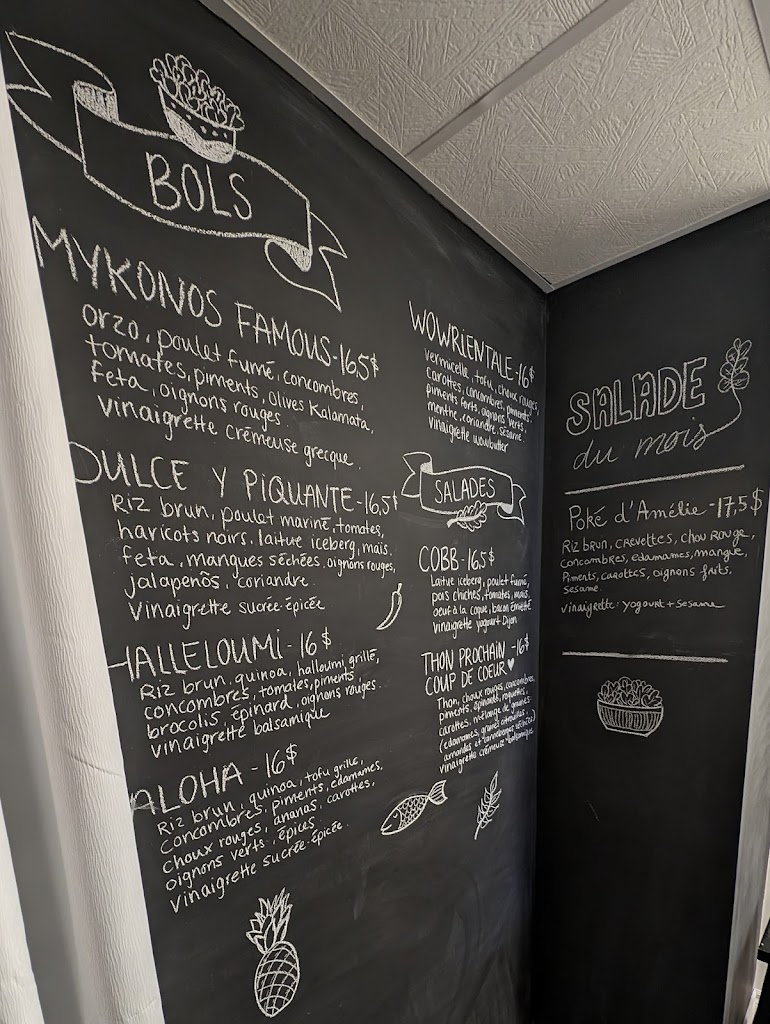 BOLS
MYKONOS FAMOUS-16,5$
orzo, poulet fumé, concombres,
tomates, piments, olives Kalamata,
Feta, oignons rouges.
vinaigrette crémeuse grecque.
DULCE Y PIQUANTE-16,5$
Riz brun, poulet mariné, tomates,
haricots noirs, laitue iceberg, maïs.
feta, mangues séchées, oignons rouges,
jalapenõs, coriandre.
Vinaigrette sucrée épicée
HALLELOUMI-16$
Riz brun, quinoa, halloumi grillé,
concombres, tomates, piments,
brocolis, épinard, oignons rouges.
vinaigrette balsamique
ALOHA-16$
Riz brun, quinoa, tofu grillé,
Concombres, piments, edamames,
choux rouges, ananas, carottes,
oignons verts, épices.
vinaigrette sucrée épicée.
WOWRIENTALE-16$
vermicelle, tofu, choux rouges,
carottes, concombres, piments,
piments forts, oignons verts,
menthe, coriandre, sésame.
vinaigrette wowbutter
SALADES
COBB-16,5$
Laitue iceberg, poulet fumé,
pois chiches, tomates, maïs,
oeuf à la coque, bacon émietté
vinaigrette yogourt Dijon
THON PROCHAIN -16$
COUP DE COEUR ♥
Thon, choux rouges, concombres,
piments, épinards, roquettes,
carottes, mélange de graines
(edamames, graines citrouilles,
amandes et canneberges séchées)
vinaigrette crémeuse balsamique
SALADE
du mois
Poké d'Amélie-17,5$
Riz brun, crevettes, chou Rouge,
concombres, edamames, mangue,
Piments, carottes, oignons frits.
Sesame.
vinaigrette: yogourt + sesame